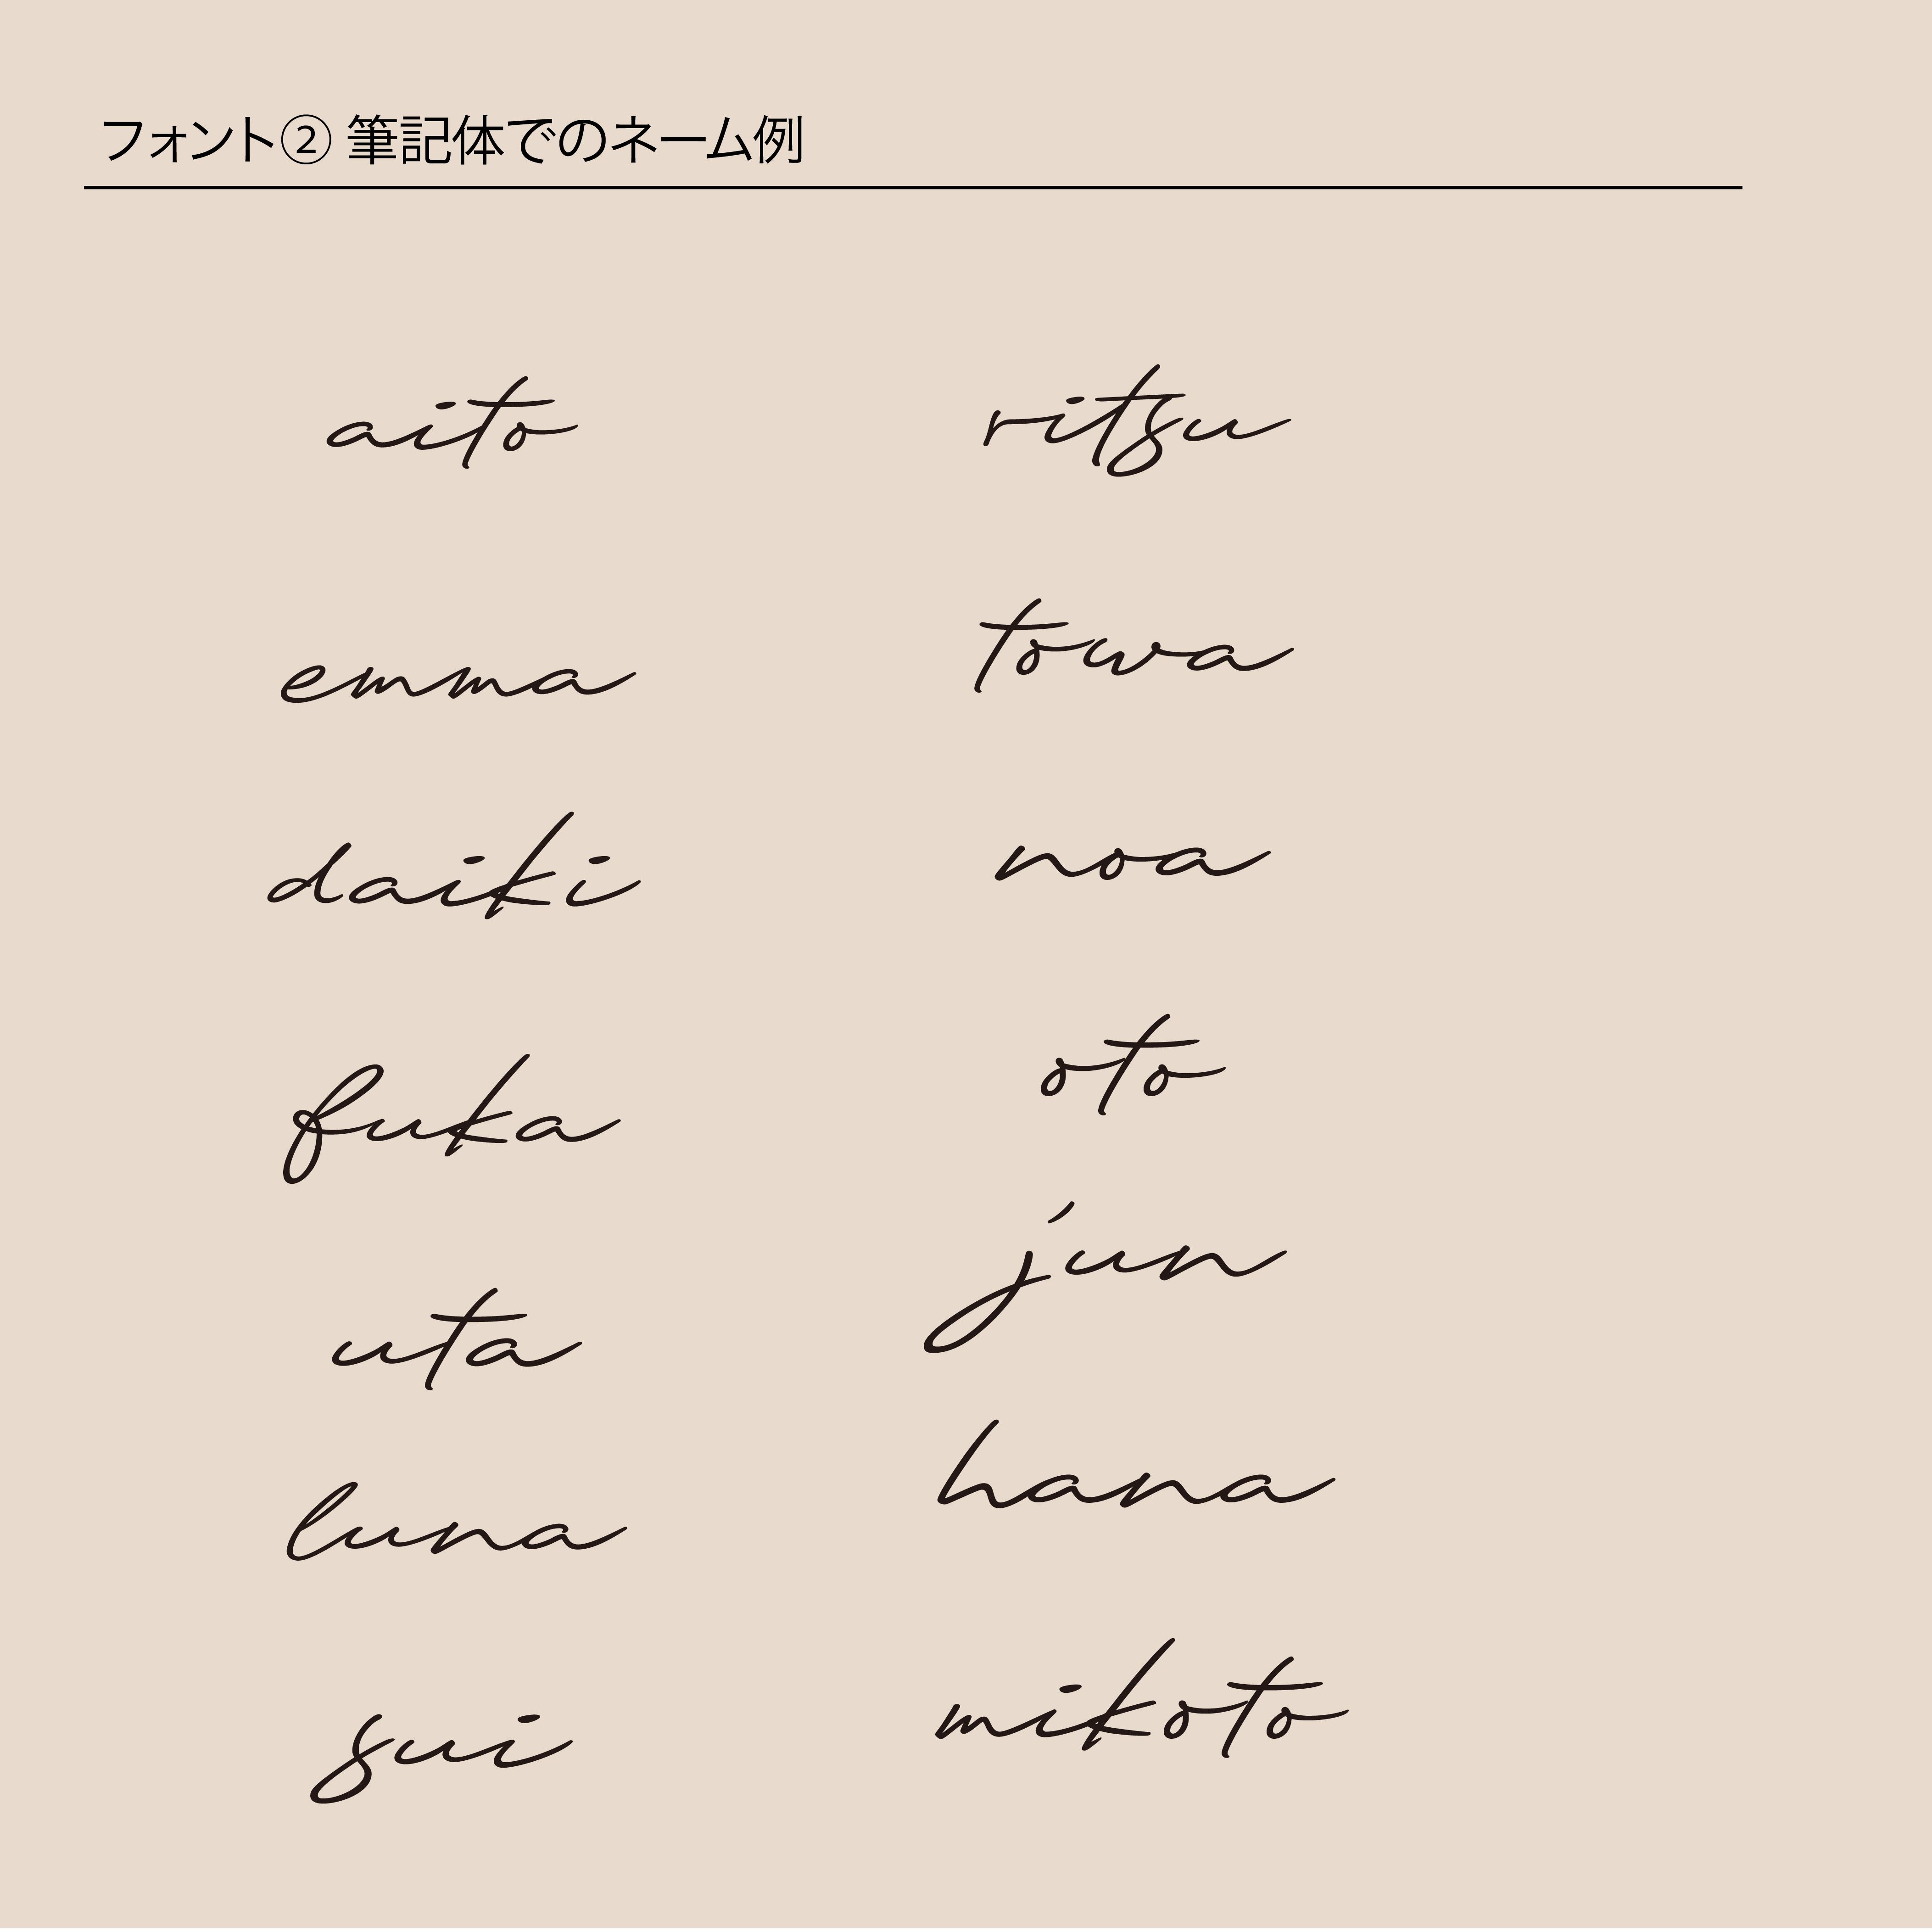 フォント② 筆記体でのネーム例
aito
emma
daiki
fuka
uta
luna
sui
ritsu
towa
noa
oto
jun
hana
mikoto